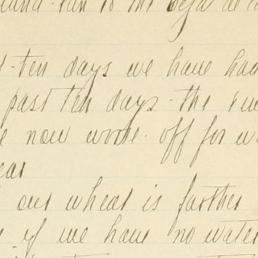 to the
t-ten days we have had
past ten days - the
now wore off for w
ear
our wheat is farther
if we have no water